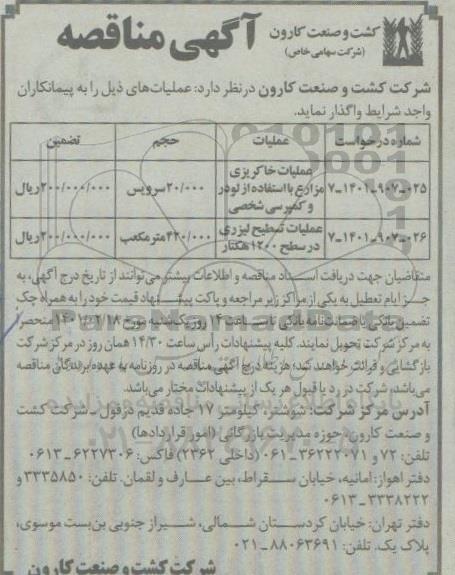 کشت و صنعت کارون
(شرکت سهامی خاص)
آگهی مناقصه
شرکت کشت و صنعت کارون درنظر دارد: عملیات‌های ذیل را به پیمانکاران
واجد شرایط واگذار نماید.
شماره درخواست عملیات حجم تضمین
۷-۱۴۰۱-۹۰۷-۰۲۵ عملیات خاکریزی مزارع با استفاده از لودر و کمپرسی شخصی ۲۰/۰۰۰سرویس ۲۰۰/۰۰۰/۰۰۰ریال
۷-۱۴۰۱-۹۰۷-۰۲۶ عملیات تسطیح لیزری در سطح ۱۲۰۰ هکتار ۴۲۰/۰۰۰مترمکعب ۲۰۰/۰۰۰/۰۰۰ریال
متقاضیان جهت دریافت اسناد مناقصه و اطلاعات بیشتر می‌توانند از تاریخ درج آگهی، به
جز ایام تعطیل به یکی از مراکز زیر مراجعه و پاکت پیشنهاد قیمت خود را به همراه چک
تضمین بانکی یا ضمانت‌نامه بانکی تا ساعت ۱۴ روز یکشنبه مورخ ۱۴۰۱/۰۲/۱۸ منحصراً
به مرکز شرکت تحویل نمایند. کلیه پیشنهادات رأس ساعت ۱۴/۳۰ همان روز در مرکز شرکت
بازگشایی و قرائت خواهند شد؛ هزینه درج آگهی مناقصه در روزنامه به عهده برندگان مناقصه
می‌باشد، شرکت در رد یا قبول هر یک از پیشنهادات مختار می‌باشد.
آدرس مرکز شرکت: شوشتر، کیلومتر ۱۷ جاده قدیم دزفول ـ شرکت کشت
و صنعت کارون ـ حوزه مدیریت بازرگانی (امور قراردادها)
تلفن: ۷۲ و ۳۶۲۲۲۰۷۱-۰۶۱ (داخلی ۲۳۶۲) فاکس: ۶۲۲۷۳۰۶-۰۶۱۳
دفتر اهواز: امانیه، خیابان سقراط، بین عارف و لقمان. تلفن: ۳۳۳۵۸۵۰ و
۳۳۳۸۲۲۲-۰۶۱۳
دفتر تهران: خیابان کردستان شمالی، شیراز جنوبی بن‌بست موسوی،
پلاک یک. تلفن: ۸۸۰۶۳۶۹۱-۰۲۱
شرکت کشت و صنعت کارون
ParsNamadData